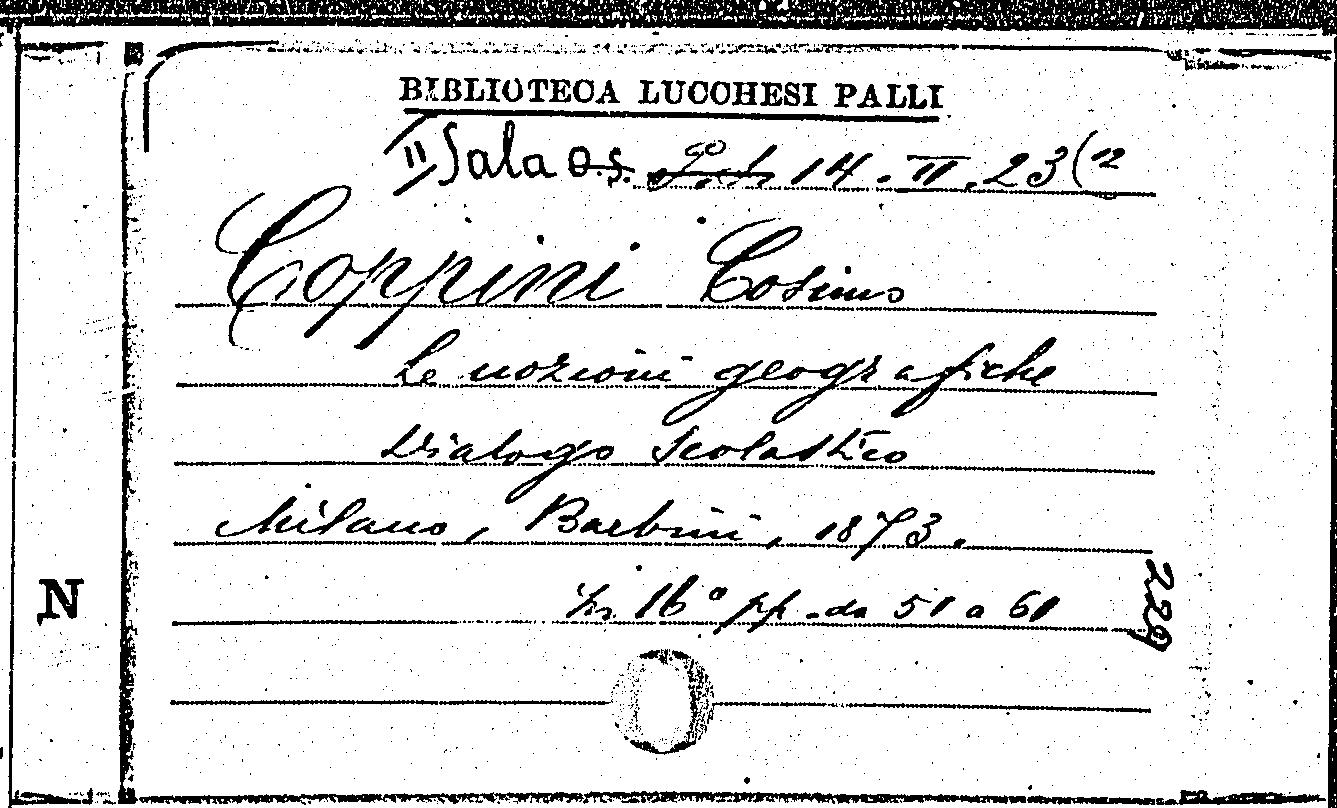 BIBLIOTECA LUCCHESI PALLI
II Sala 14. II. 23(12
Coppini Cosimo
Le nozioni geografiche
Dialogo Scolastico
Milano, Barbini, 1873.
N
In 16° pp. da 51 a 61
229